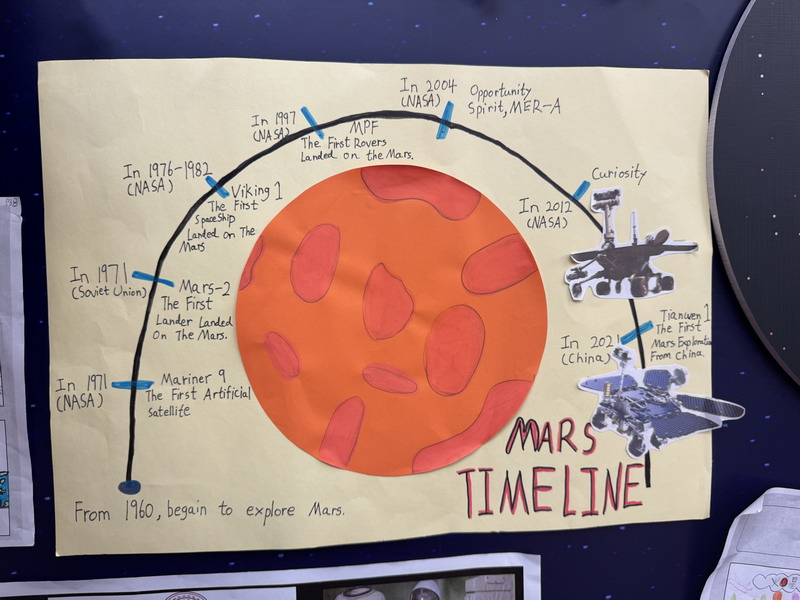 In 2004
(NASA)
Opportunity
Spirit, MER-A
In 1997
(NASA)
MPF
The First Rovers
Landed on the Mars.
In 1976-1982
(NASA)
Viking 1
The First
SpaceShip
Landed on The
Mars
Curiosity
In 2012
(NASA)
In 1971
(Soviet Union)
Mars-2
The First
Lander Landed
on The Mars.
Tianwen 1
The First
Mars Exploration
From China
In 2021
(China)
In 1971
(NASA)
Mariner 9
The First Artificial
Satellite
MARS
TIMELINE
From 1960, begain to explore Mars.